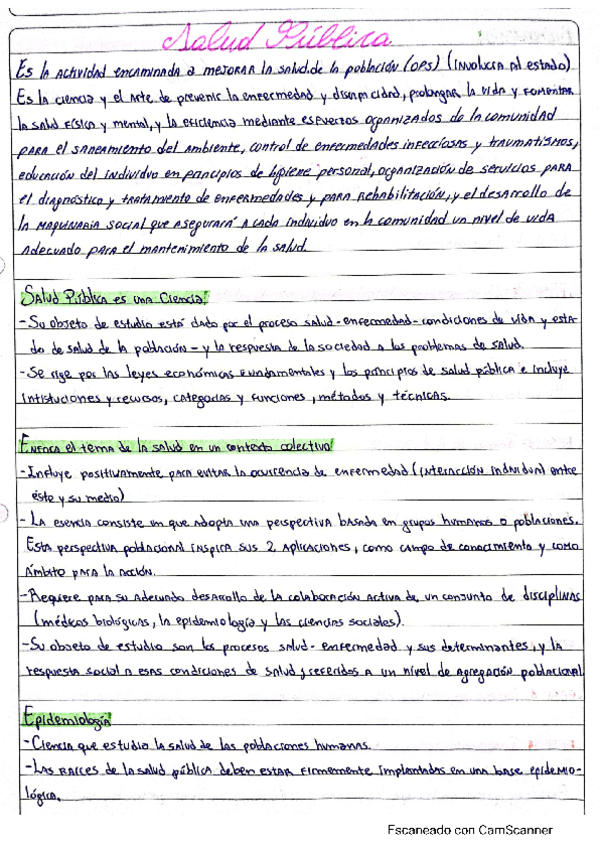 Salud Pública
Es la actividad encaminada a mejorar la salud de la población (OPS) (Involucra al estado)
Es la ciencia y el arte de prevenir la enfermedad y discapacidad, prolongar la vida y fomentar
la salud física y mental, y la eficiencia mediante esfuerzos organizados de la comunidad
para el saneamiento del ambiente, control de enfermedades infecciosas y traumatismos,
educación del individuo en principios de higiene personal, organización de servicios para
el diagnóstico y tratamiento de enfermedades y para rehabilitación, y el desarrollo de
la maquinaria social que asegurará a cada individuo en la comunidad un nivel de vida
adecuado para el mantenimiento de la salud.
Salud Pública es una Ciencia:
- Su objeto de estudio está dado por el proceso salud-enfermedad-condiciones de vida y esta-
do de salud de la población - y la respuesta de la sociedad a los problemas de salud.
- Se rige por las leyes económicas fundamentales y los principios de salud pública e incluye
intistuciones y recursos, categorias y funciones, métodos y técnicas.
Enfoca el tema de la salud en un contexto colectivo:
- Influye positivamente para evitar la ocurrencia de enfermedad (interacción individual entre
éste y su medio)
- La esencia consiste en que adopta una perspectiva basada en grupos humanos o poblaciones.
Esta perspectiva poblacional inspira sus 2 aplicaciones, como campo de conocimiento y como
ámbito para la acción.
- Requiere para su adecuado desarrollo de la colaboración activa de un conjunto de disciplinas
(médicas biológicas, la epidemiología y las ciencias sociales).
- Su objeto de estudio son los procesos salud-enfermedad y sus determinantes, y la
respuesta social a esas condiciones de salud, referidos a un nivel de agregación poblacional
Epidemiología
- Ciencia que estudia la salud de las poblaciones humanas.
- Las raíces de la salud pública deben estar firmemente implantadas en una base epidemio-
lógica.
Escaneado con CamScanner